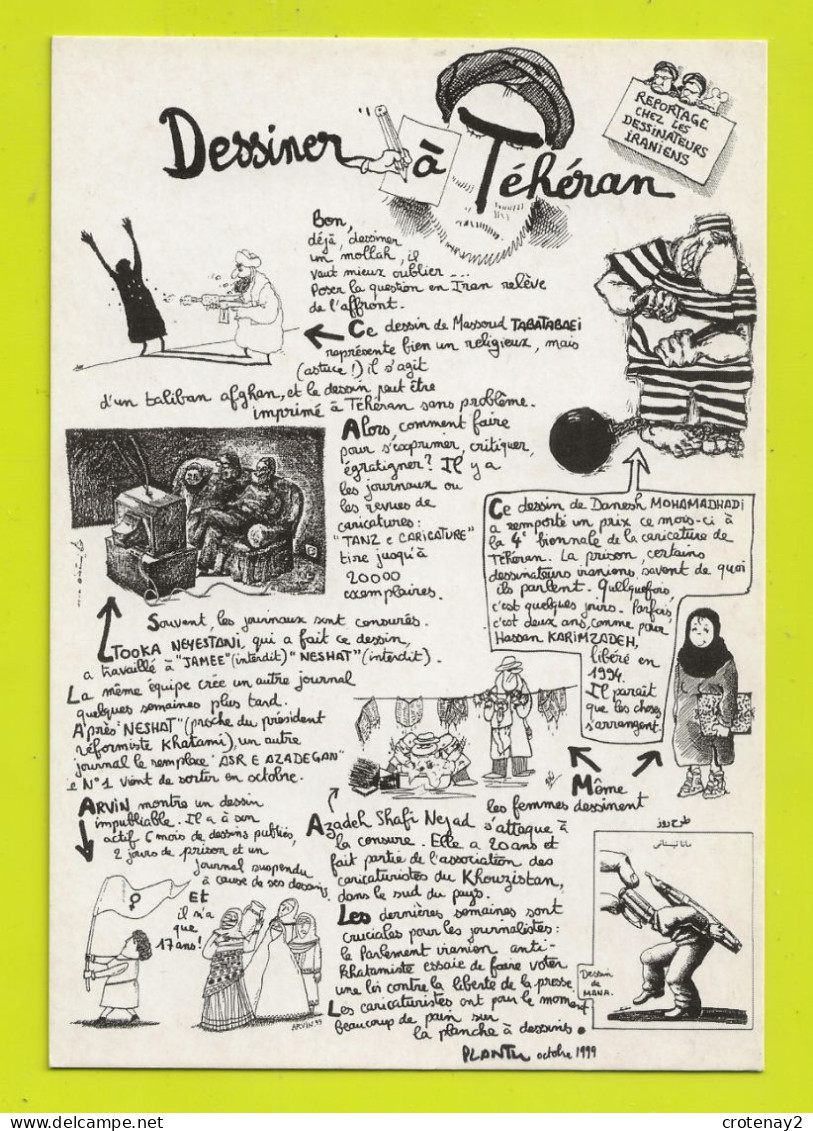 Dessiner à Téhéran
REPORTAGE
CHEZ LES
DESSINATEURS
IRANIENS
Bon,
déjà, dessiner
un mollah, il
vaut mieux oublier ...
Poser la question en Iran relève
de l'affront.
Ce dessin de Massoud TABATABAEI
représente bien un religieux, mais
(astuce !) il s'agit
d'un taliban afghan, et le dessin peut être
imprimé à Téhéran sans problème.
Alors, comment faire
pour s'exprimer, critiquer,
égratigner? Il y a
les journaux ou
les revues de
caricatures :
"TANZ e CARICATURE"
tire jusqu'à
20000
exemplaires.
Ce dessin de Danesh MOHAMADHADI
a remporté un prix ce mois-ci à
la 4e biennale de la caricature de
Téhéran. La prison, certains
dessinateurs iraniens savent de quoi
ils parlent. Quelquefois,
c'est quelques jours. Parfois,
c'est deux ans, comme pour
Hassan KARIMZADEH,
libéré en
1994.
Il paraît
que les choses
s'arrangent.
Souvent, les journaux sont censurés.
TOOKA NEYESTANI, qui a fait ce dessin,
a travaillé à "JAMEE" (interdit) "NESHAT" (interdit).
La même équipe crée un autre journal
quelques semaines plus tard.
Après "NESHAT" (proche du président
réformiste Khatami), un autre
journal le remplace "ASR E AZADEGAN"
e N°1 vient de sortir en octobre.
ARVIN montre un dessin
impubliable. Il a à son
actif 6 mois de dessins publiés,
2 jours de prison et un
journal suspendu
à cause de ses dessins.
Et
il n'a
que
17 ans!
ARVIN 99
Même
les femmes dessinent
Azadeh Shafi Nejad s'attaque à
la censure. Elle a 20 ans et
fait partie de l'association des
caricaturistes du Khouzistan,
dans le sud du pays.
Les dernières semaines sont
cruciales pour les journalistes :
le Parlement iranien anti-
Khatamiste essaie de faire voter
une loi contre la liberté de la presse.
Les caricaturistes ont pour le moment
beaucoup de pain sur
la planche à dessins.
PLANTU octobre 1999
طرح روز
مانا نیستانی
Dessin
de
MANA.
crotenay2